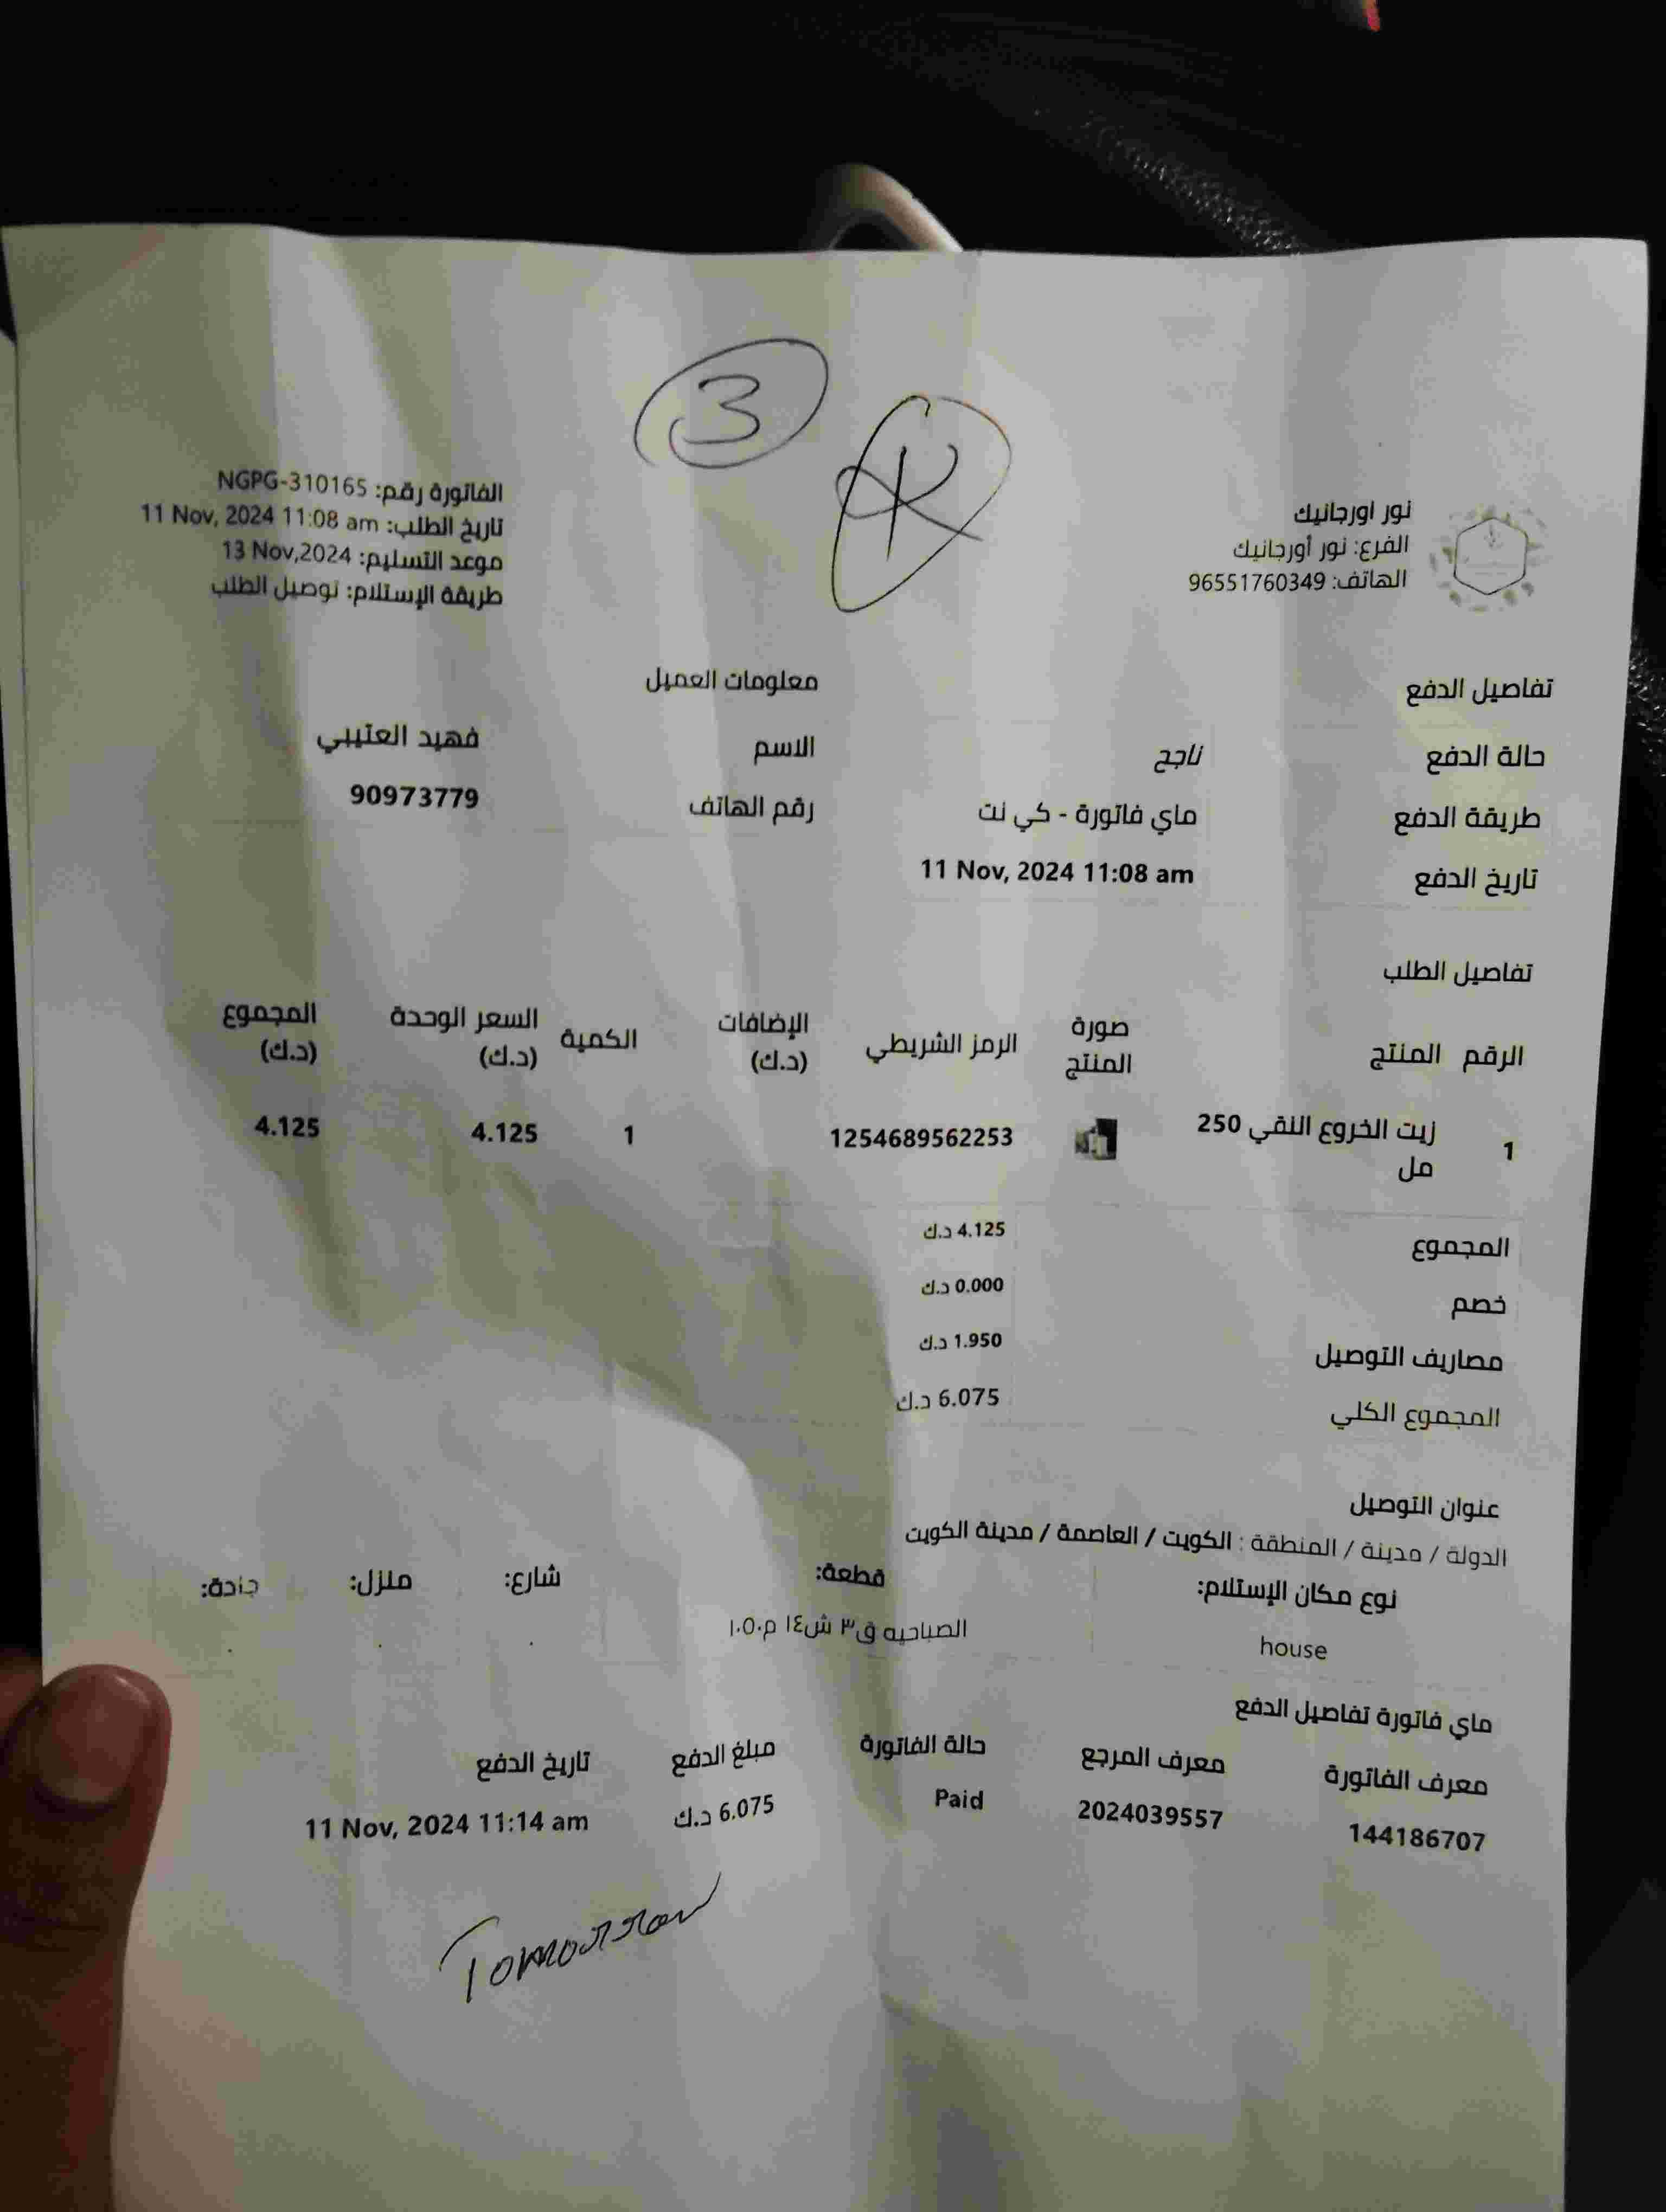 3
نور اورجانيك
الفرع: نور أورجانيك
الهاتف: 96551760349
الفاتورة رقم: NGPG-310165
تاريخ الطلب: 11 Nov, 2024 11:08 am
موعد التسليم: 13 Nov,2024
طريقة الإستلام: توصيل الطلب
تفاصيل الدفع
حالة الدفع ناجح
طريقة الدفع ماي فاتورة - كي نت
تاريخ الدفع 11 Nov, 2024 11:08 am
معلومات العميل
الاسم فهيد العتيبي
رقم الهاتف 90973779
تفاصيل الطلب
الرقم المنتج صورة المنتج الرمز الشريطي الإضافات (د.ك) الكمية السعر الوحدة (د.ك) المجموع (د.ك)
1 زيت الخروع النقي 250 مل 1254689562253 1 4.125 4.125
المجموع 4.125 د.ك
خصم 0.000 د.ك
مصاريف التوصيل 1.950 د.ك
المجموع الكلي 6.075 د.ك
عنوان التوصيل
الدولة / مدينة / المنطقة : الكويت / العاصمة / مدينة الكويت
نوع مكان الإستلام: قطعة: شارع: منزل: جادة:
house الصباحيه ق٣ ش١٤ م١٠٥٠ . . .
ماي فاتورة تفاصيل الدفع
معرف الفاتورة معرف المرجع حالة الفاتورة مبلغ الدفع تاريخ الدفع
144186707 2024039557 Paid 6.075 د.ك 11 Nov, 2024 11:14 am
Tomorrow